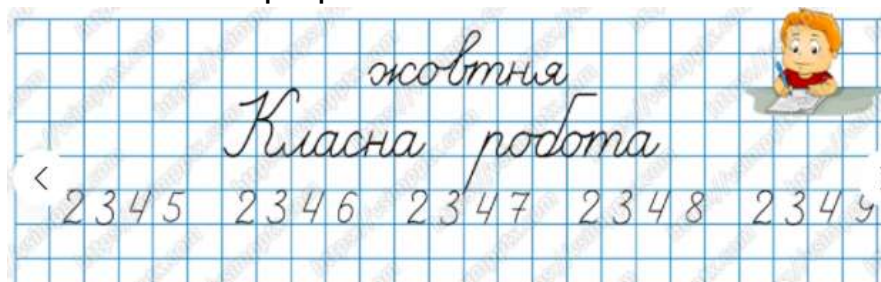 жовтня
Класна робота
2345 2346 2347 2348 2349